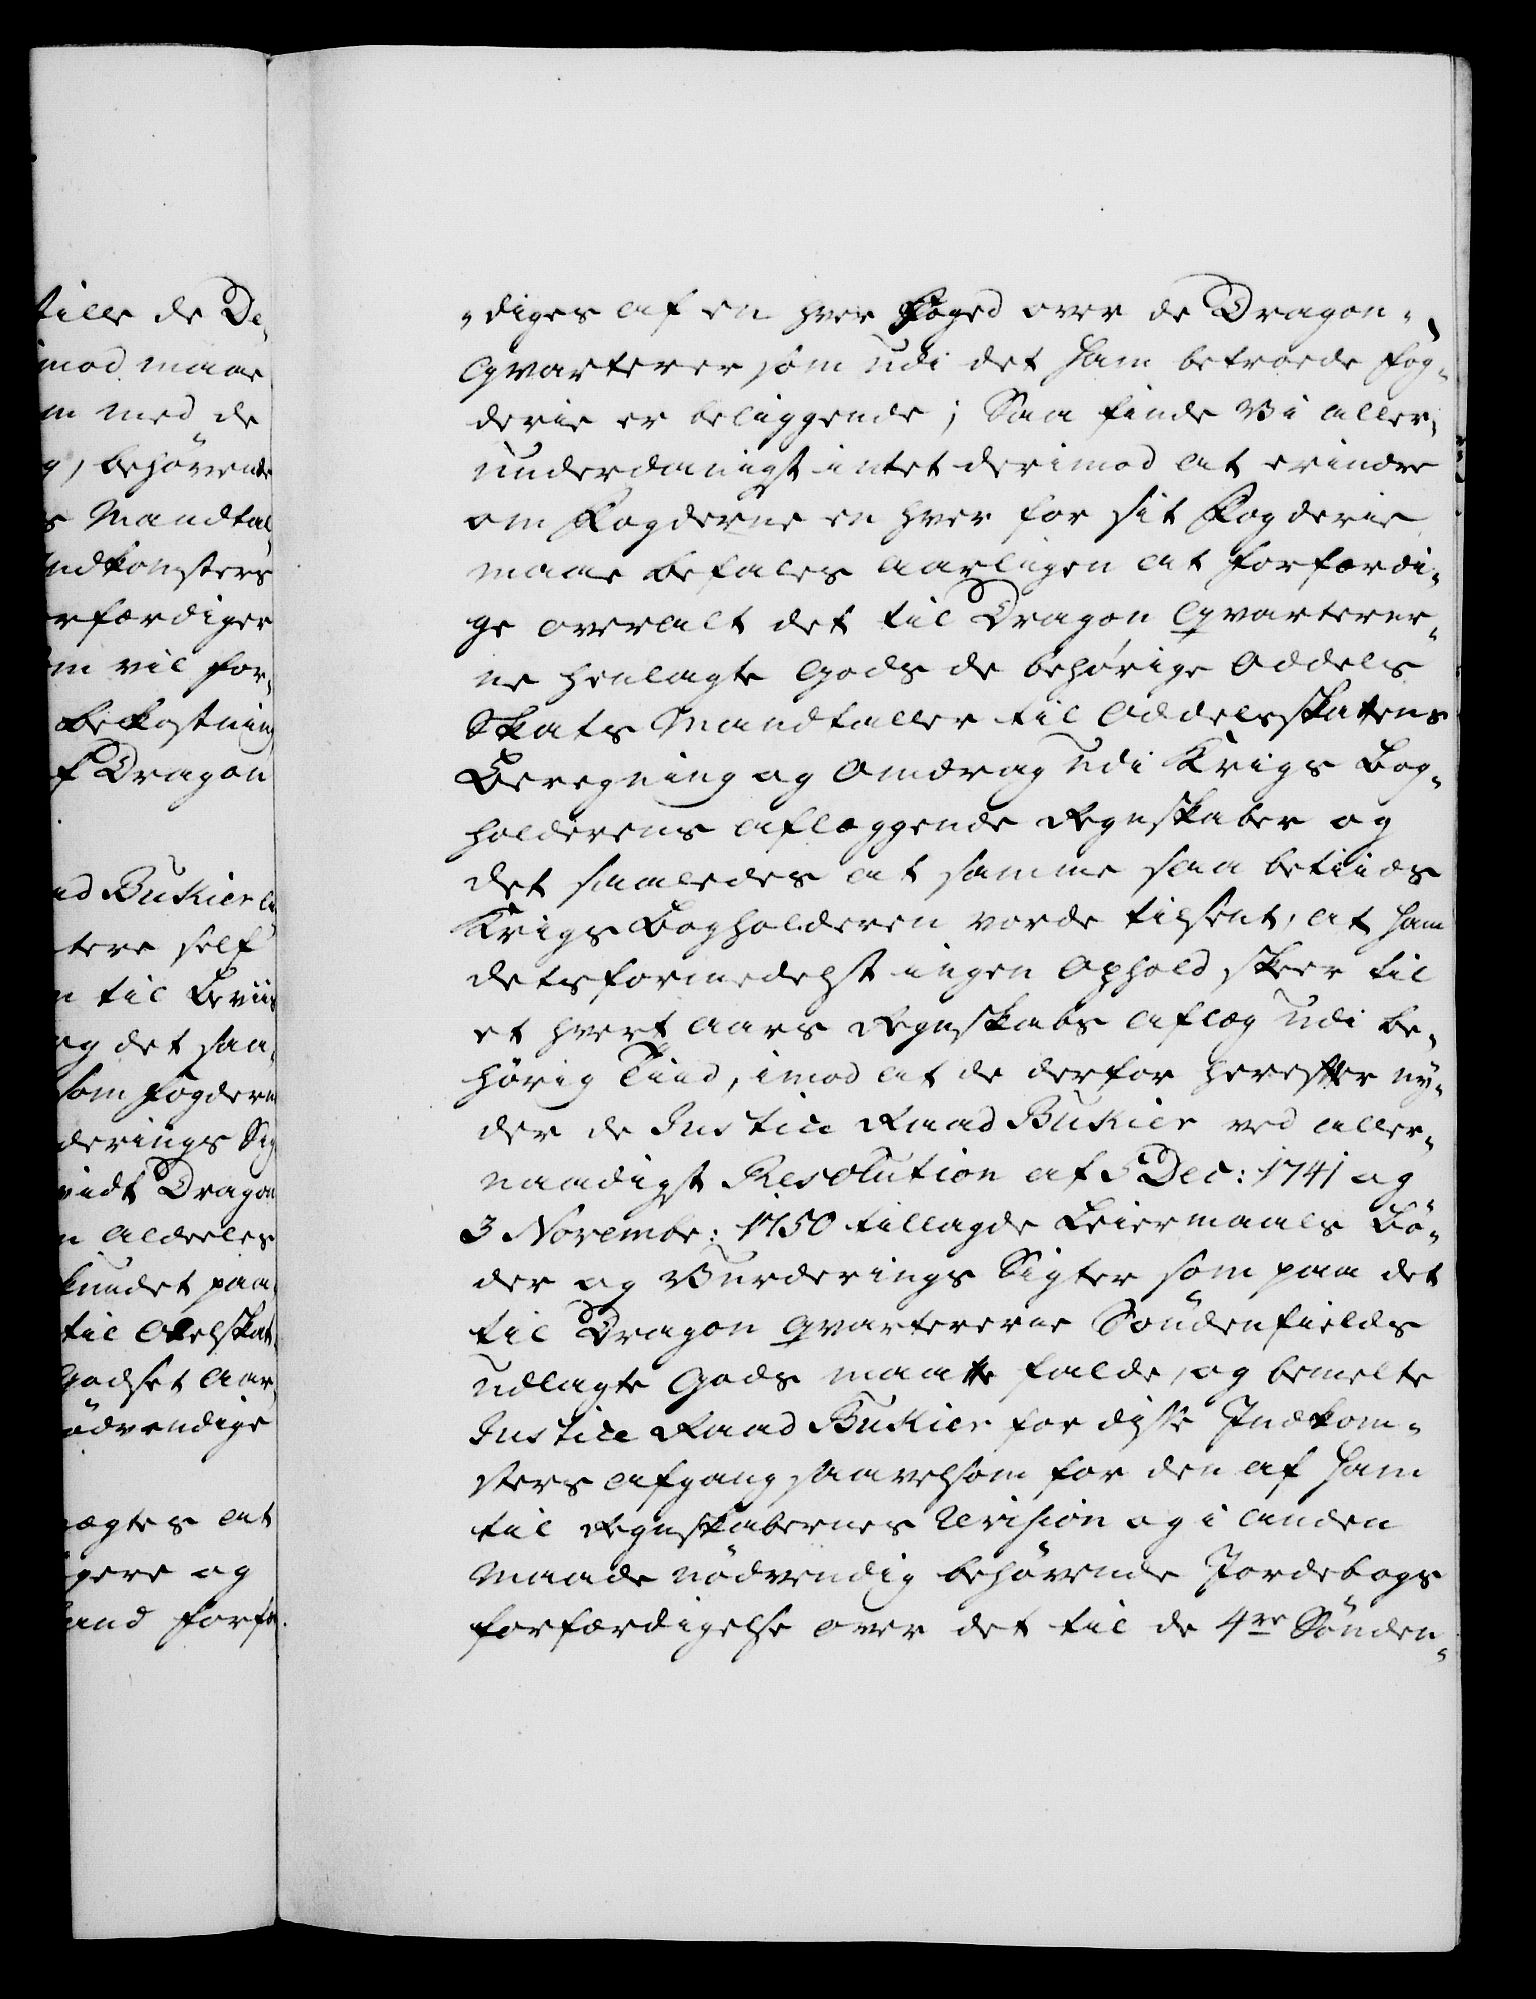 tille de De„
imod maae
m med de
g, behøvende
s Mandtal„
Indkomsters
rfærdiger
om vil for„
Bekostning
f Dragon
ad Bukier
tere self
n til Beviis
og det saa„
som Fogderne
derings Sig
vidt Dragon
n aldeeles
kundet paa„
til Odelskat„
Godset Aar„
nødvendige
ægtes at
igere og
and forfæ„
„diges af en hver Foged over de Dragon„
Qvarterer som udi det ham betroede Fog„
derie er beliggende; Saa finde Vi aller„
underdanigst intet derimod at erindre
om Fogderne en hver for sit Fogderie
maae befales aarligen at forfærdi„
ge overalt det til Dragon Qvarterer„
ne henlagte Gods de behørige Oddels
Skats Mandtaller til Oddelsskattens
Beregning og Omdrag udi Krigs Bog„
holderens aflæggende Regnskaber og
det saaledes at samme saa betiids
Krigs Bogholderen vorde tilsent, at ham
detsformedelst ingen Ophold skeer til
et hvert Aars Regnskabs Aflæg udi be„
hørig Tiid, imod at de derfor herefter ny„
der de Justice Raad Bukier ved aller„
naadigst Resolution af 5 Dec: 1741 og
3 Novembr: 1750 tillagde Leiermaals Bö„
der og Vurderings Sigter som paa det
til Dragon Qvartererne Söndenfields
udlagte Gods maatte falde, og bemelte
Justice Raad Bukier for disse Indkom„
sters Afgang saavelsom for den af ham
til Regnskabernes Revision og i anden
Maade nödvendig behøvende Jordebogs
forfærdigelse over det til de 4re Sönden„